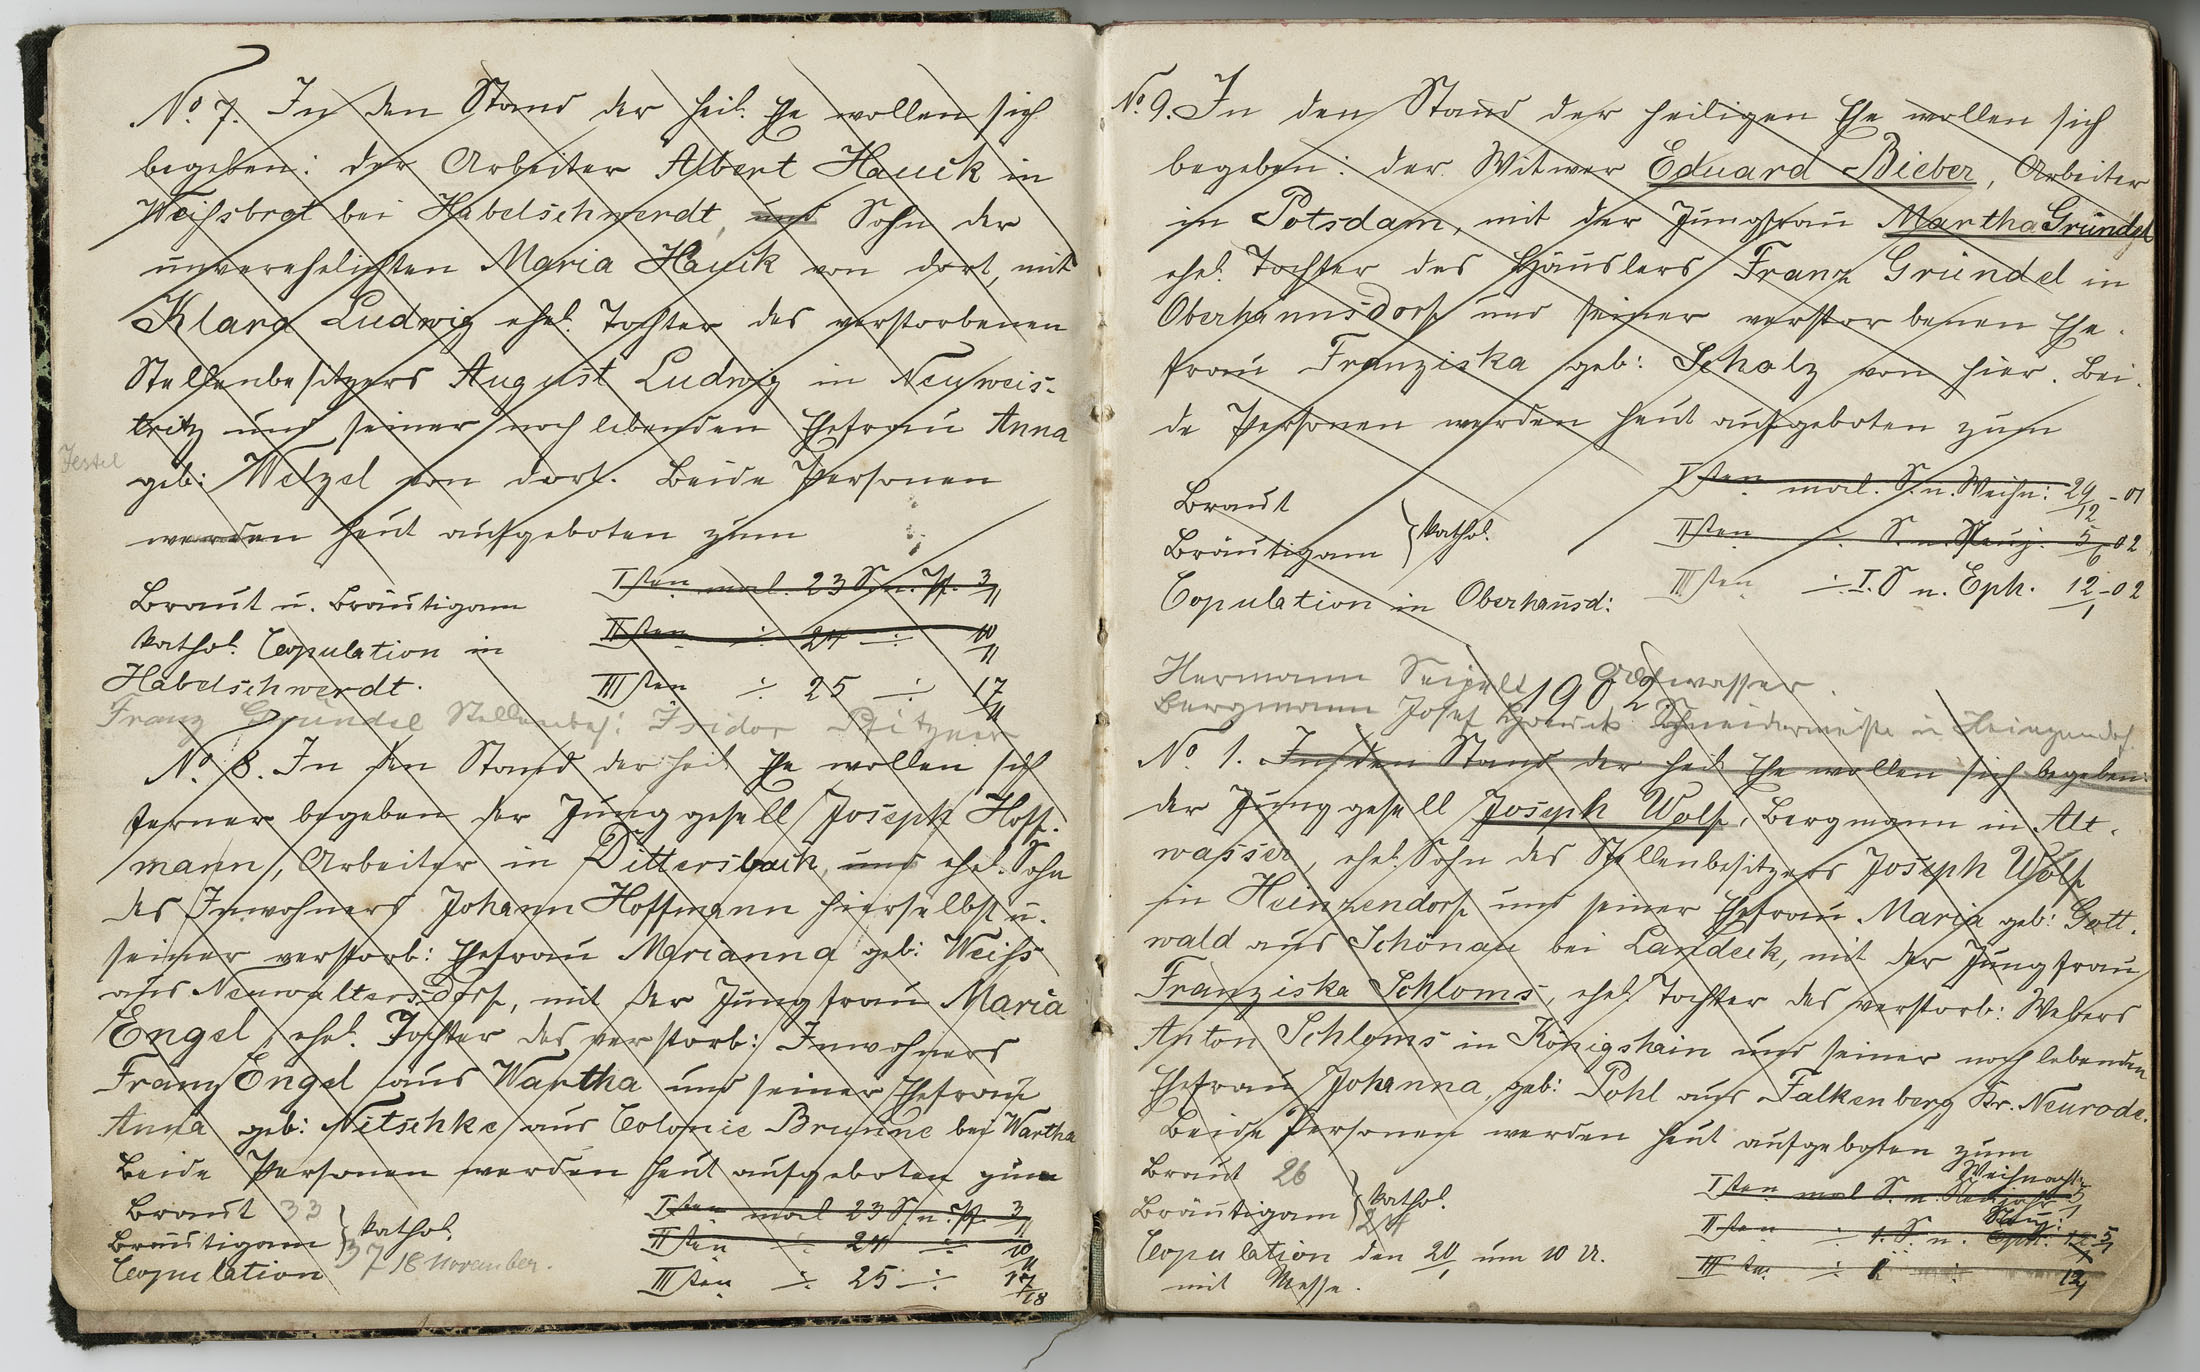 No. 7. In den Stand der heil. Ehe wollen sich
begeben: der Arbeiter Albert Hauck in
Weissbrot bei Habelschwerdt, und Sohn der
unverehelichten Maria Hauck von dort, mit
Klara Ludwig ehel. Tochter des verstorbenen
Stellenbesitzers August Ludwig in Neuweis-
tritz und seiner noch lebenden Ehefrau Anna
geb: Welzel von dort. Beide Personen
werden heut aufgeboten zum
Braut u. Bräutigam
kathol. Copulation in
Habelschwerdt.
Isten mal. 23 S. n. Pf. 3/11
IIten ÷ 24 ÷ 10/11
IIIten ÷ 25 ÷ 17/11
Franz Gründel Stellenbes: Isidor Bitzner
No. 8. In den Stand der heil. Ehe wollen sich
ferner begeben der Junggesell Joseph Hoff-
mann, Arbeiter in Dittersbach, und ehel. Sohn
des Inwohners Johann Hoffmann hierselbst u.
seiner verstorb: Ehefrau Marianna geb: Weiss
aus Neuwaltersdorf, mit der Jungfrau Maria
Engel ehel. Tochter des verstorb: Inwohners
Franz Engel aus Wartha und seiner Ehefrau
Anna geb: Nitschke aus Colonie Brunne bei Wartha
Beide Personen werden heut aufgeboten zum
Braut 33
Bräutigam } kathol.
Copulation 37 18 November.
Isten mal 23 S. n. Pf. 3/11
IIten ÷ 24 ÷ 10/11
IIIten ÷ 25 ÷ 17/18
No. 9. In den Stand der heiligen Ehe wollen sich
begeben: der Witwer Eduard Bieber, Arbeiter
in Potsdam, mit der Jungfrau Martha Gründel
ehel. Tochter des Häuslers Franz Gründel in
Oberhannsdorf und seiner verstorbenen Ehe-
frau Franziska geb: Scholz von hier. Bei-
de Personen werden heut aufgeboten zum
Braut
Bräutigam } kathol.
Copulation in Oberhansd:
Isten mal. S. n. Weihn: 29/12 - 01
IIten ÷ S. n. Neuj. 5/6 02
IIIten ÷ I. S n. Eph. 12/1 - 02
Hermann Seipelt Altwasser.
1902
Bergmann Josef Schneidermeister in Heinzendorf
No. 1. In den Stand der heil. Ehe wollen sich begeben:
der Junggesell Joseph Wolf, Bergmann in Alt-
wasser, ehel. Sohn des Stellenbesitzers Joseph Wolf
in Heinzendorf und seiner Ehefrau Maria geb: Gott-
wald aus Schönau bei Landeck, mit der Jungfrau
Franziska Schloms, ehel. Tochter des verstorb: Webers
Anton Schloms in Königshain und seiner noch lebenden
Ehefrau Johanna, geb: Pohl aus Falkenberg Kr. Neurode.
Beide Personen werden heut aufgeboten zum
Braut 26
Bräutigam } kathol.
Copulation den 20/1 um 10 U.
mit Messe.
Weihnacht:
Isten mal S. n. Neujahr
Neuj:
IIten ÷ 1. S. n. Eph: 12/1 5/1
IIIten ÷ 12/1